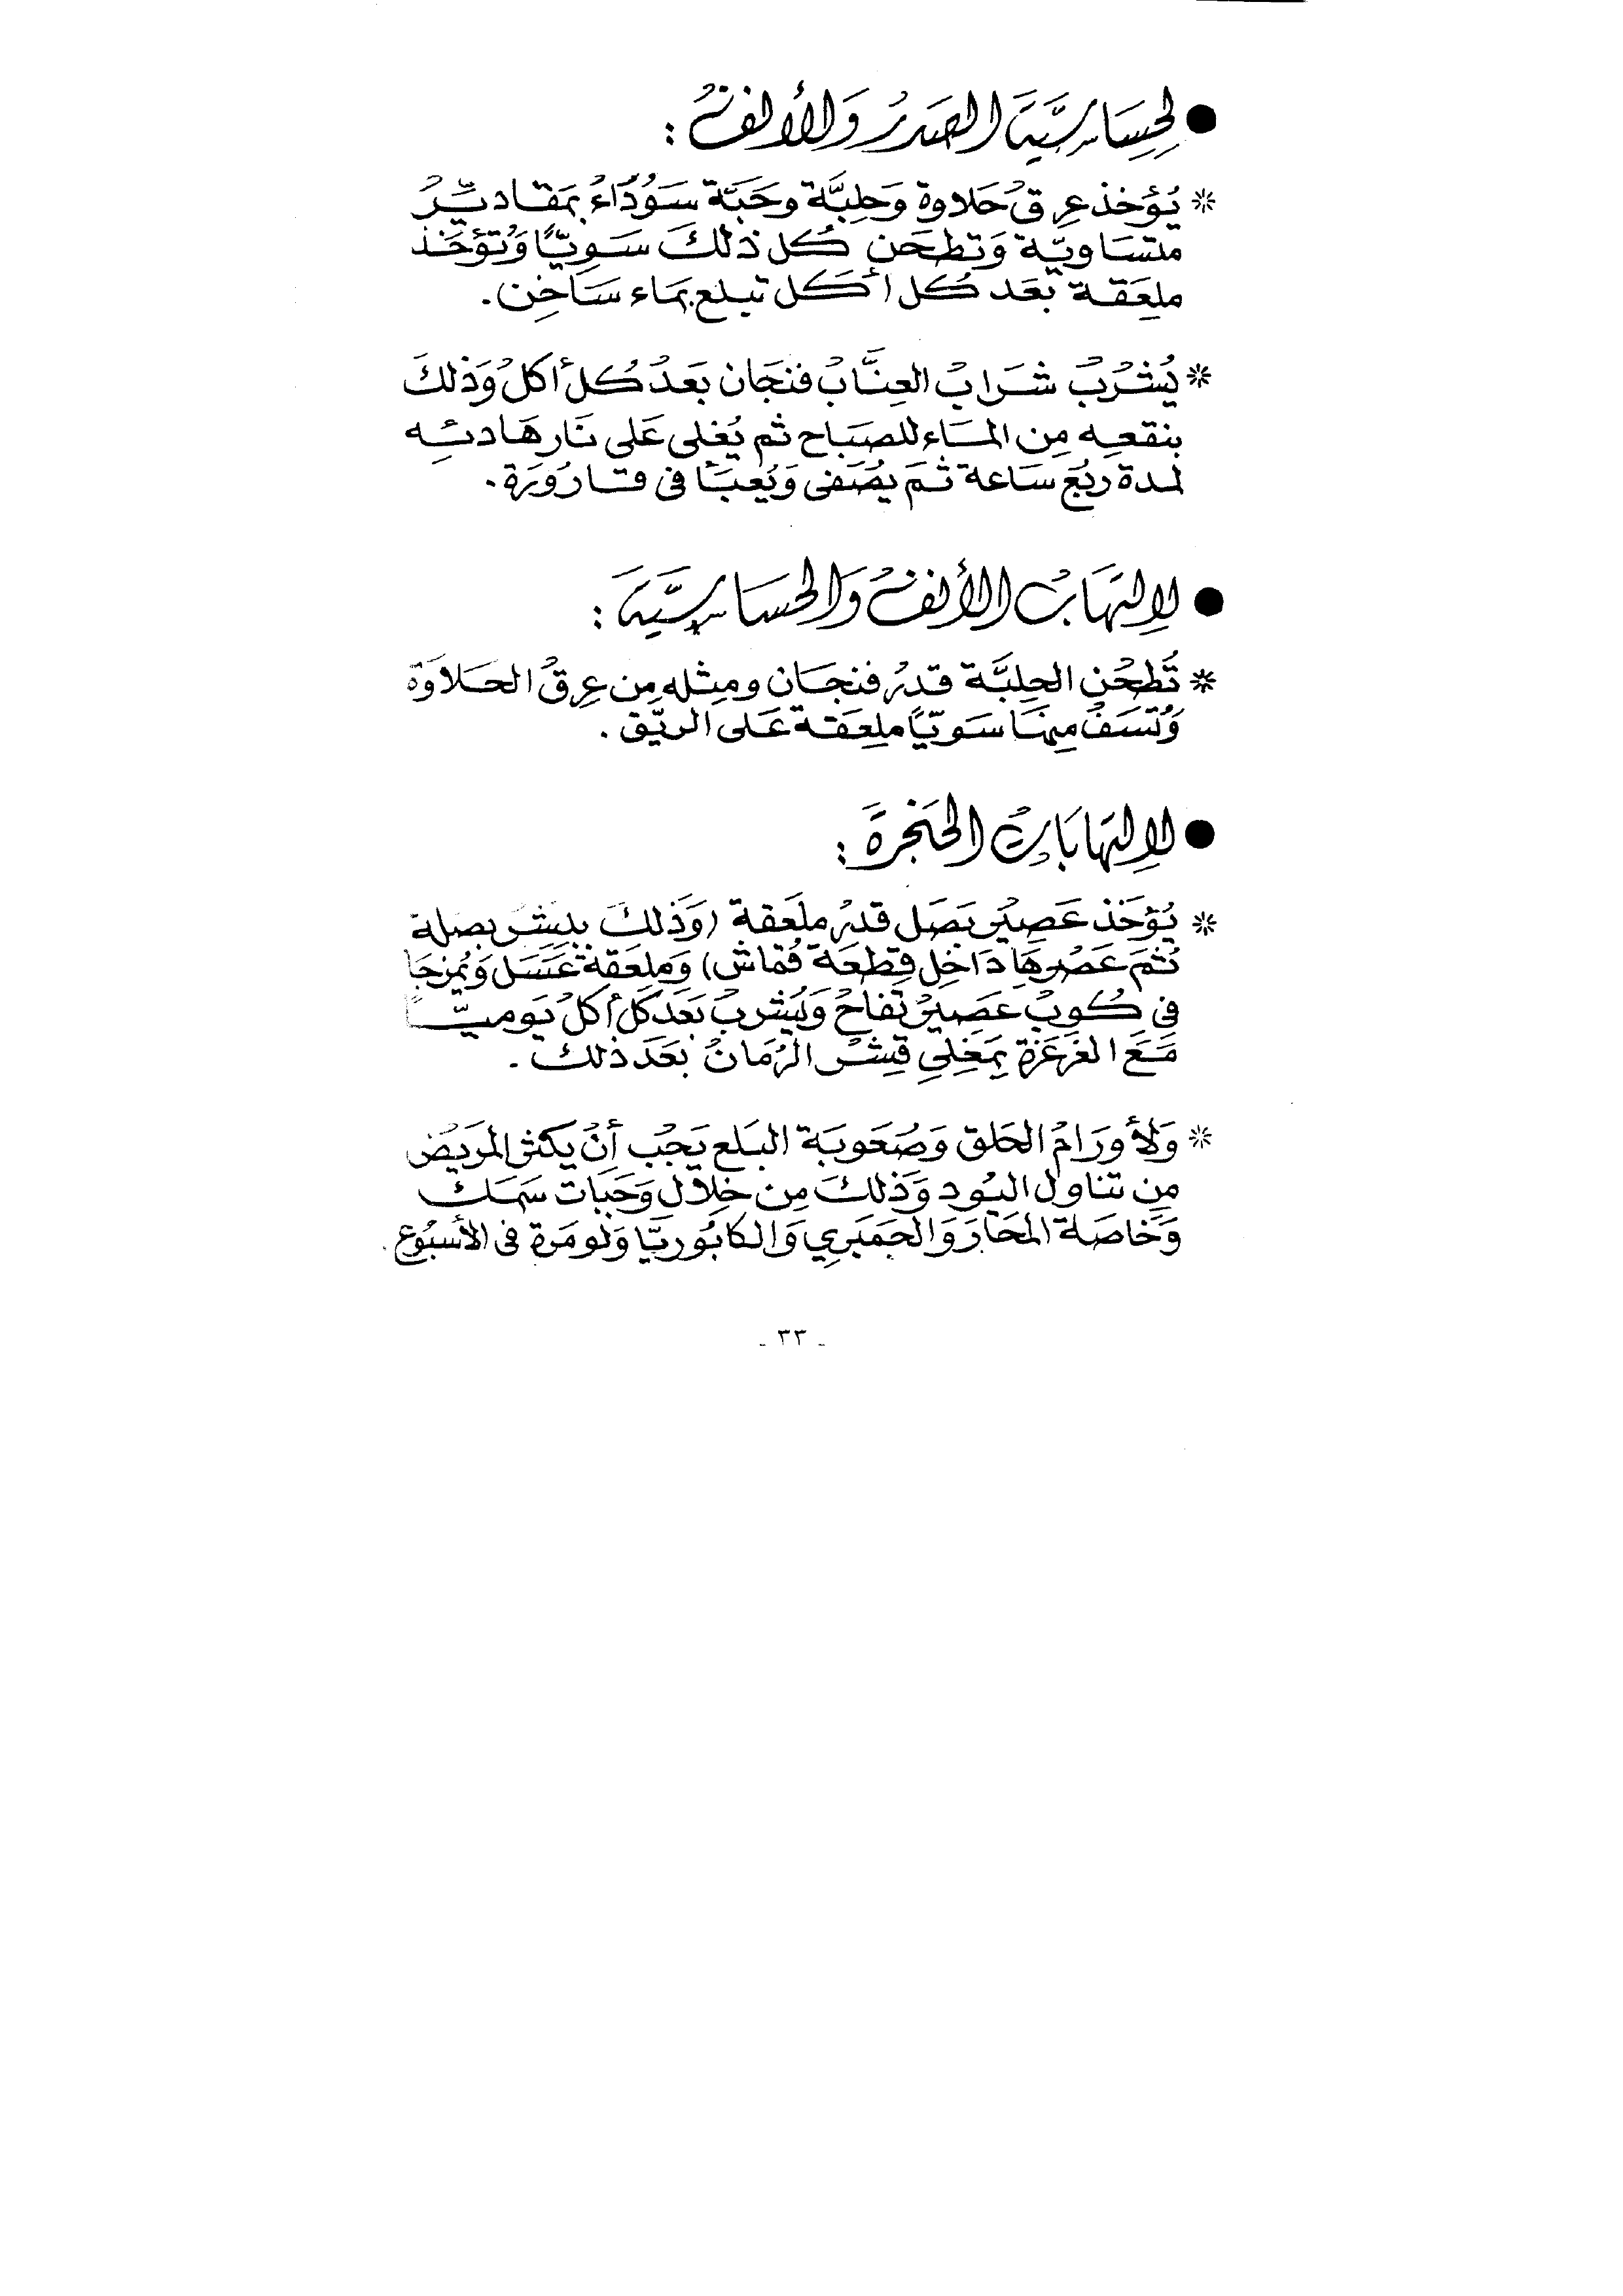 ● لحساسية الصدر والأنف :
* يؤخذ عرق حلاوة وحلبة وحبة سوداء بمقادير
متساوية وتطحن كل ذلك سويًا وتؤخذ
ملعقة بعد كل أكل تبلع بماء ساخن .
* يشرب شراب العناب فنجان بعد كل أكل وذلك
بنقعه من المساء للصباح ثم يغلى على نار هادئه
لمدة ربع ساعة ثم يصفى ويعبأ فى قارورة .
● لالتهاب الأنف والحساسية :
* تطحن الحلبة قدر فنجان ومثله من عرق الحلاوة
وتسف منها سويًا ملعقة على الريق .
● لالتهابات الحنجرة :
* يؤخذ عصير بصل قدر ملعقة (وذلك ببشر بصلة
ثم عصرها داخل قطعة قماش) وملعقة عسل ويمزجا
فى كوب عصير تفاح ويشرب بعد كل أكل يوميًا
مع الغرغرة بمغلي قشر الرمان بعد ذلك .
* ولأورام الحلق وصعوبة البلع يجب أن يكثر المريض
من تناول اليود وذلك من خلال وجبات سمك
وخاصة المحار والجمبري والكابوريا ولو مرة فى الأسبوع .
- ٣٣ -